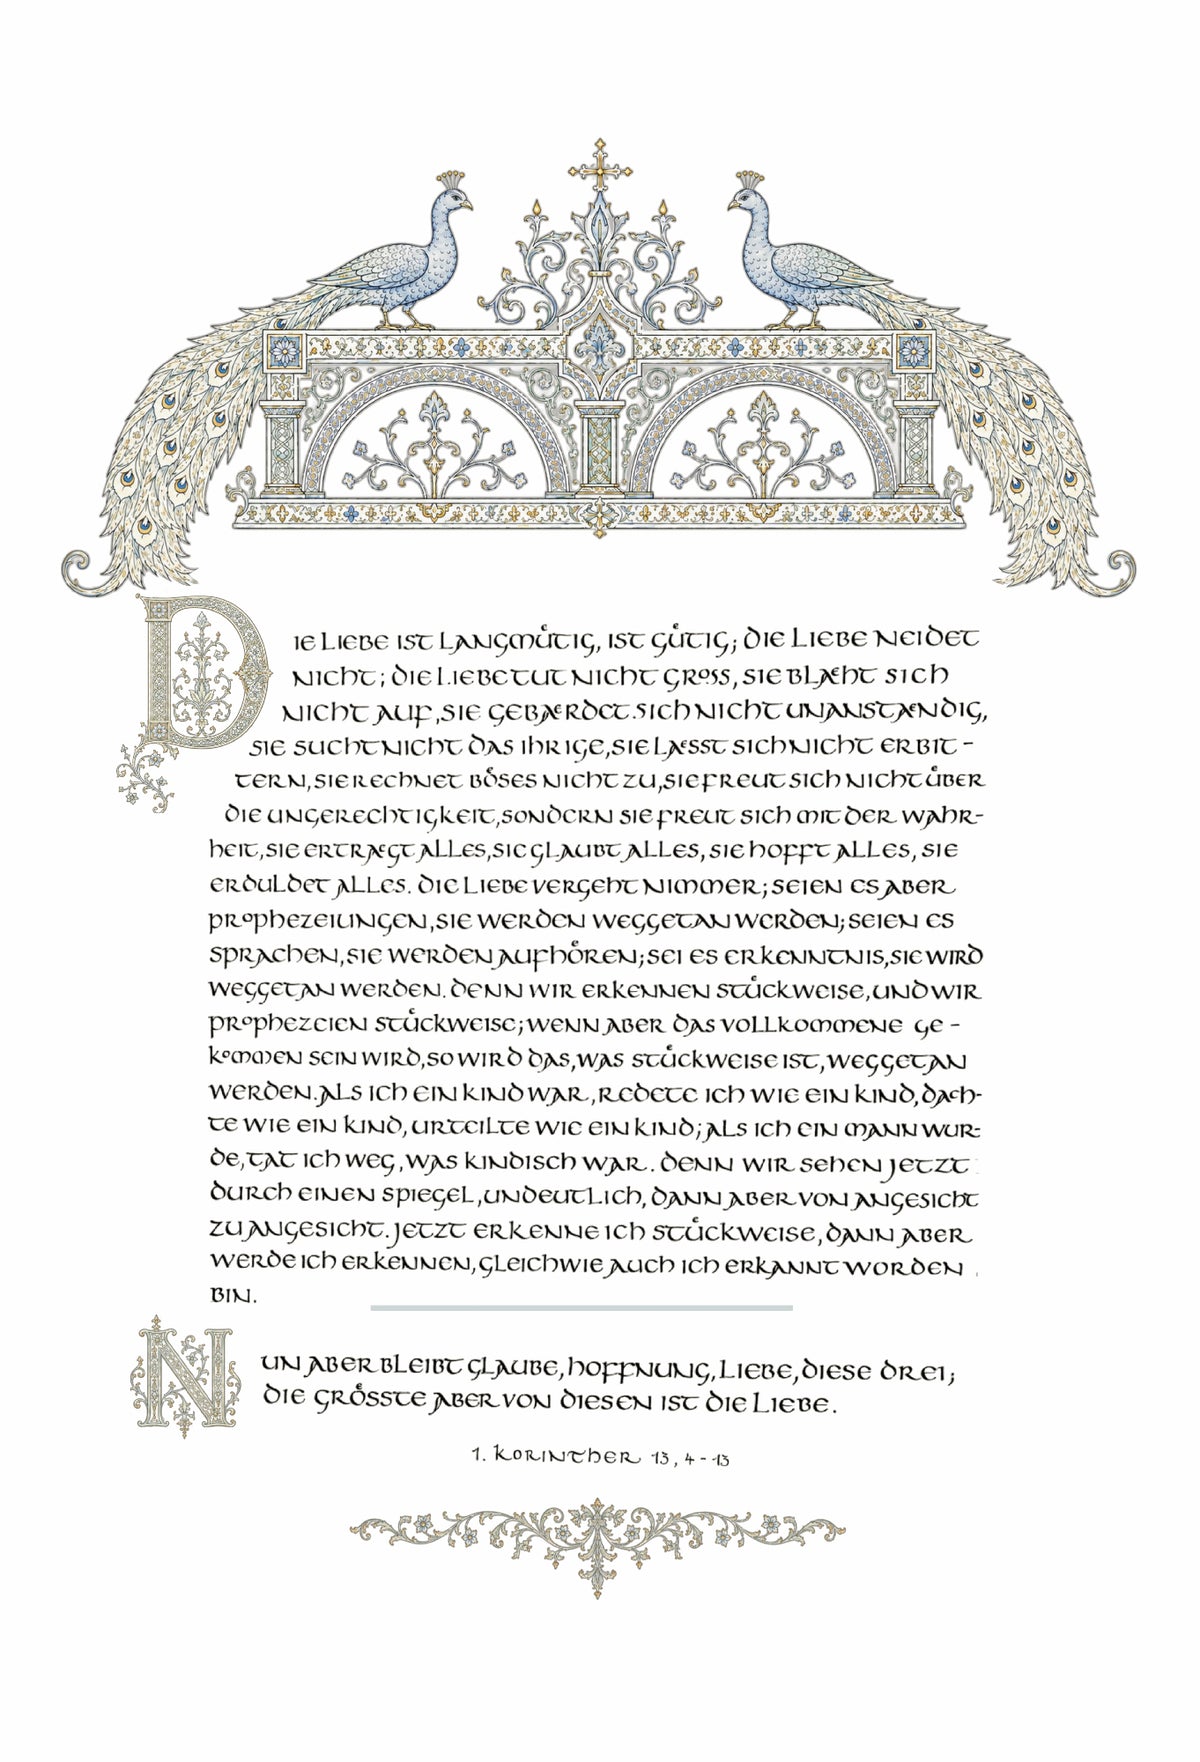 DIE LIEBE IST LANGMÜTIG, IST GÜTIG; DIE LIEBE NEIDET
NICHT; DIE LIEBE TUT NICHT GROSS, SIE BLÆHT SICH
NICHT AUF, SIE GEBÆRDET SICH NICHT UNANSTÆNDIG,
SIE SUCHT NICHT DAS IHRIGE, SIE LÆSST SICH NICHT ERBIT-
TERN, SIE RECHNET BÖSES NICHT ZU, SIE FREUT SICH NICHT ÜBER
DIE UNGERECHTIGKEIT, SONDERN SIE FREUT SICH MIT DER WAHR-
HEIT, SIE ERTRÆGT ALLES, SIE GLAUBT ALLES, SIE HOFFT ALLES, SIE
ERDULDET ALLES. DIE LIEBE VERGEHT NIMMER; SEIEN ES ABER
PROPHEZEIUNGEN, SIE WERDEN WEGGETAN WERDEN; SEIEN ES
SPRACHEN, SIE WERDEN AUFHÖREN; SEI ES ERKENNTNIS, SIE WIRD
WEGGETAN WERDEN. DENN WIR ERKENNEN STÜCKWEISE, UND WIR
PROPHEZEIEN STÜCKWEISE; WENN ABER DAS VOLLKOMMENE GE-
KOMMEN SEIN WIRD, SO WIRD DAS, WAS STÜCKWEISE IST, WEGGETAN
WERDEN. ALS ICH EIN KIND WAR, REDETE ICH WIE EIN KIND, DACH-
TE WIE EIN KIND, URTEILTE WIE EIN KIND; ALS ICH EIN MANN WUR-
DE, TAT ICH WEG, WAS KINDISCH WAR. DENN WIR SEHEN JETZT
DURCH EINEN SPIEGEL, UNDEUTLICH, DANN ABER VON ANGESICHT
ZU ANGESICHT. JETZT ERKENNE ICH STÜCKWEISE, DANN ABER
WERDE ICH ERKENNEN, GLEICHWIE AUCH ICH ERKANNT WORDEN
BIN.
NUN ABER BLEIBT GLAUBE, HOFFNUNG, LIEBE, DIESE DREI;
DIE GRÖSSTE ABER VON DIESEN IST DIE LIEBE.
1. KORINTHER 13, 4-13